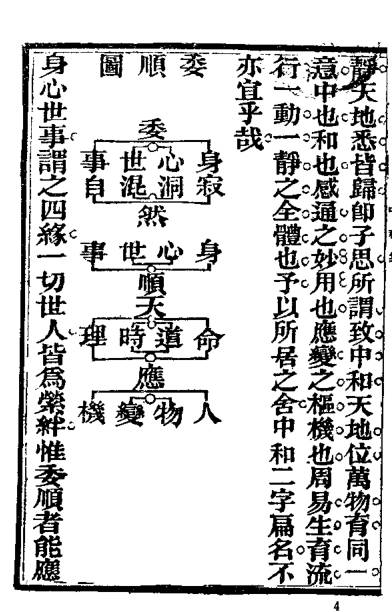 靜天地悉皆歸即子思所謂致中和天地位萬物育同一
意中也和也感通之妙用也應變之樞機也周易生育流
行一動一靜之全體也予以所居之舍中和二字扁名不
亦宜乎哉
委順圖
委
身心世事
寂洞混自
然
身心世事
順
天
命道時理
應
人物變機
身心世事謂之四緣一切世人皆爲縈絆惟委順者能應
4